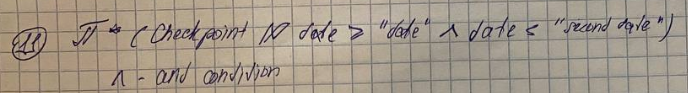 11 π * (Checkpoint ⋈ date > "date" ∧ date < "second date")
∧ - and condition